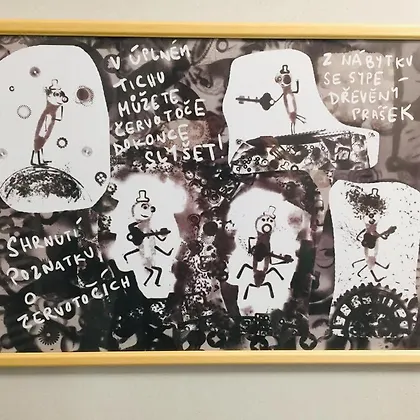 V ÚPLNÉM
TICHU
MŮŽETE
ČERVOTOČE
DOKONCE
SLYŠET!
Z NÁBYTKU
SE SYPE
DŘEVĚNÝ
PRAŠEK
SHRNUTÍ
POZNATKŮ
O
ČERVOTOČÍCH